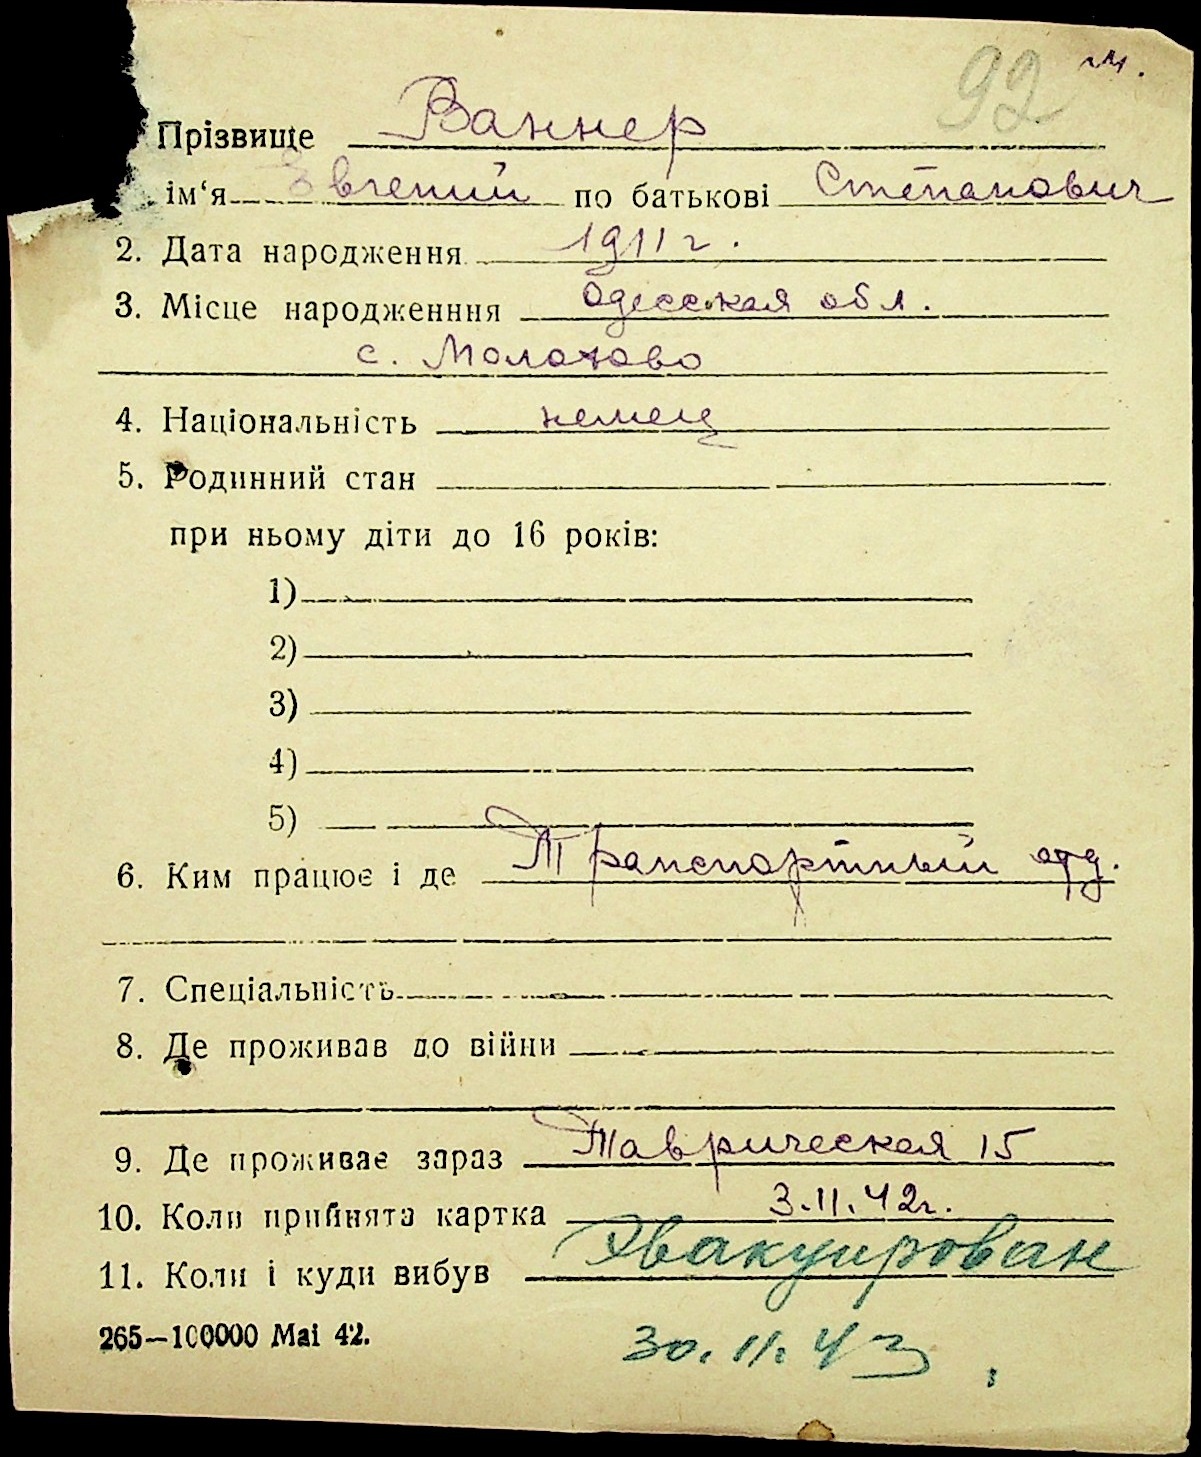 92 м.
Прізвище Ваннер
ім‘я Евгений по батькові Степанович
2. Дата народження 1911 г.
3. Місце народженння Одесская обл.
с. Молотово
4. Національність немец
5. Родинний стан
при ньому діти до 16 років:
1)
2)
3)
4)
5)
6. Ким працює і де Транспортный отд.
7. Спеціальність
8. Де проживав до війни
9. Де проживає зараз Таврическая 15
10. Коли прийнята картка 3.11.42г.
11. Коли і куди вибув Эвакуирован
265—100000 Mai 42. 30.11.43